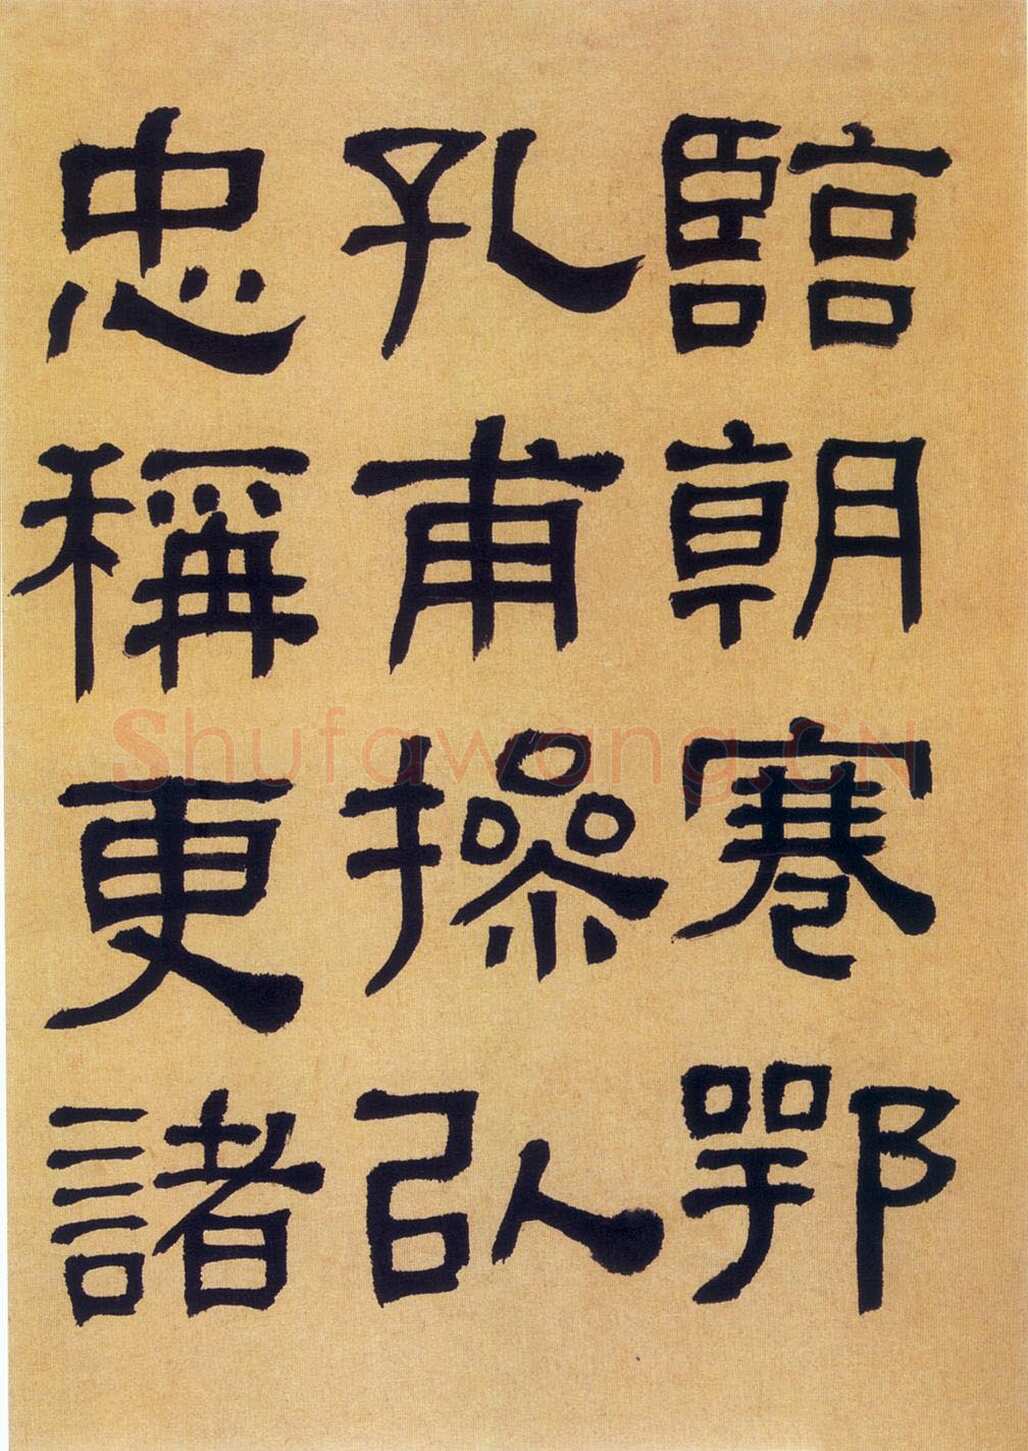 臨朝謇鄂
孔甫操以
忠稱更諸
Shufawang.CN